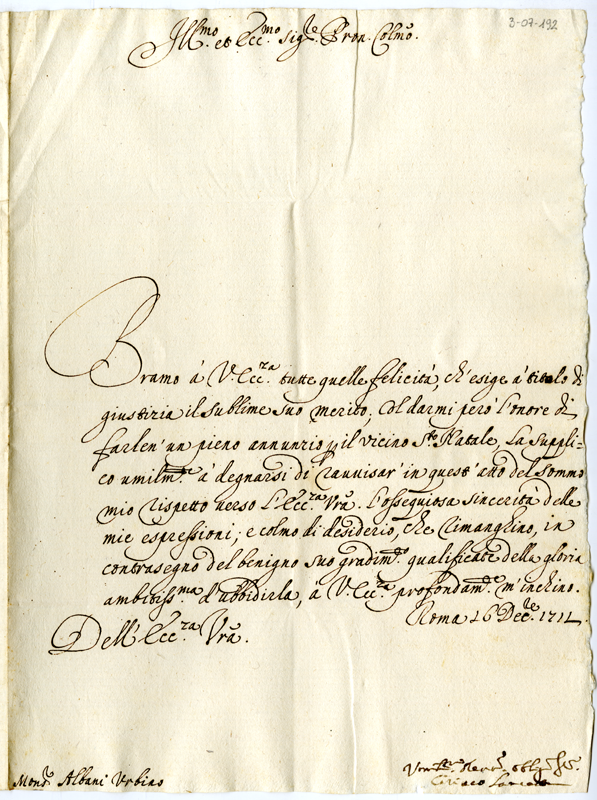 3-07-192
Ill.mo et Ecc.mo Sig.re Pron. Colmo.
Bramo á V. Ecc.za tutte quelle felicitá, ch'esige á titolo di
giustizia il sublime suo merito; Col darmi peró l'onore di
farlen' un pieno annunzio p il vicino S.to Natale, La suppli=
co umilm.te á degnarsi di ravvisar' in quest'atto del sommo
mio rispetto verso L'Ecc.za Vrã. l'ossequiosa sinceritá delle
mie espressioni; e colmo di desiderio, che rimanghino, in
contrasegno del benigno suo gradim.to qualificate della gloria
ambitiss.ma d'ubbidirla, á V. Ecc.za profondam.te m'inchino.
Roma 16 Dec.re 171
Dell' Ecc.za Vrã.
Mons.r Albani Urbino
Um.mo Serv.re Obl.mo
Ciriaco